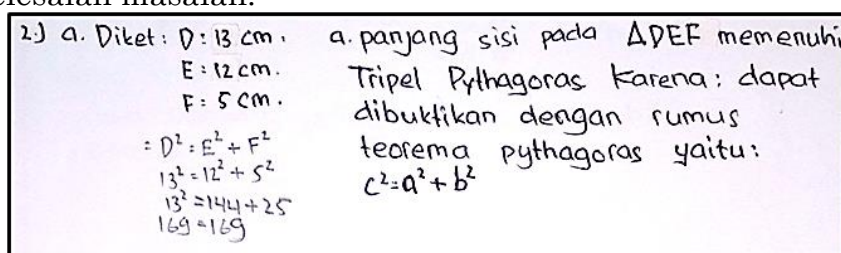 2.) a. Diket : D : 13 cm.
E : 12 cm.
F : 5 cm.
: D² : E² + F²
13² = 12² + 5²
13² = 144 + 25
169 = 169
a. panjang sisi pada ΔDEF memenuhi
Tripel Pythagoras karena : dapat
dibuktikan dengan rumus
teorema pythagoras yaitu :
c² = a² + b²